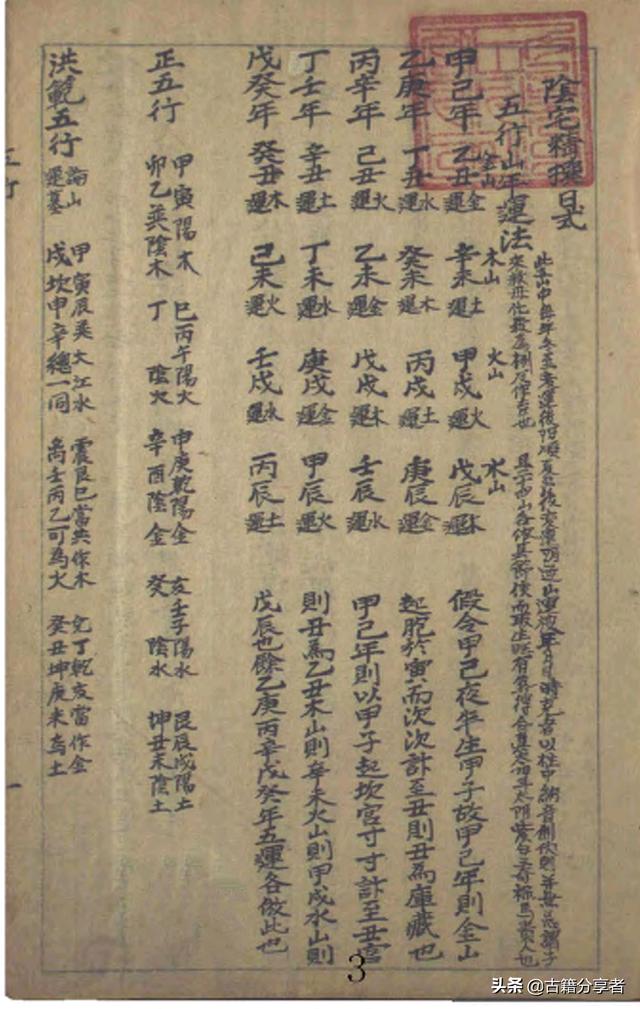 陰宅精撰日式
五行山年運法
金山 木山 火山 水山
甲己年 乙丑金運 辛未土運 甲戌火運 戊辰木運
乙庚年 丁丑水運 癸未木運 丙戌土運 庚辰金運
丙辛年 己丑火運 乙未金運 戊戌木運 壬辰水運
丁壬年 辛丑土運 丁未水運 庚戌金運 甲辰火運
戊癸年 癸丑木運 己未火運 壬戌水運 丙辰土運
假令甲己夜半生甲子故甲己年則金山
起胞於寅而次次計至丑則丑為庫藏也
甲己年則以甲子起坎宮寸寸計至丑宮
則丑為乙丑木山則辛未火山則甲戌水山則
戊辰也餘乙庚丙辛戊癸年五運各倣此也
正五行
甲寅陽木 巳丙午陽火 申庚乾陽金 亥壬子陽水 艮辰戌陽土
卯乙巽陰木 丁陰火 辛酉陰金 癸陰水 坤丑未陰土
洪範五行 論山運墓
甲寅辰巽大江水 震艮巳當共作木 兌丁乾亥當作金
戌坎申辛總一同 离壬丙乙可為火 癸丑坤庚未為土
五行
3
头条 @古籍分享者